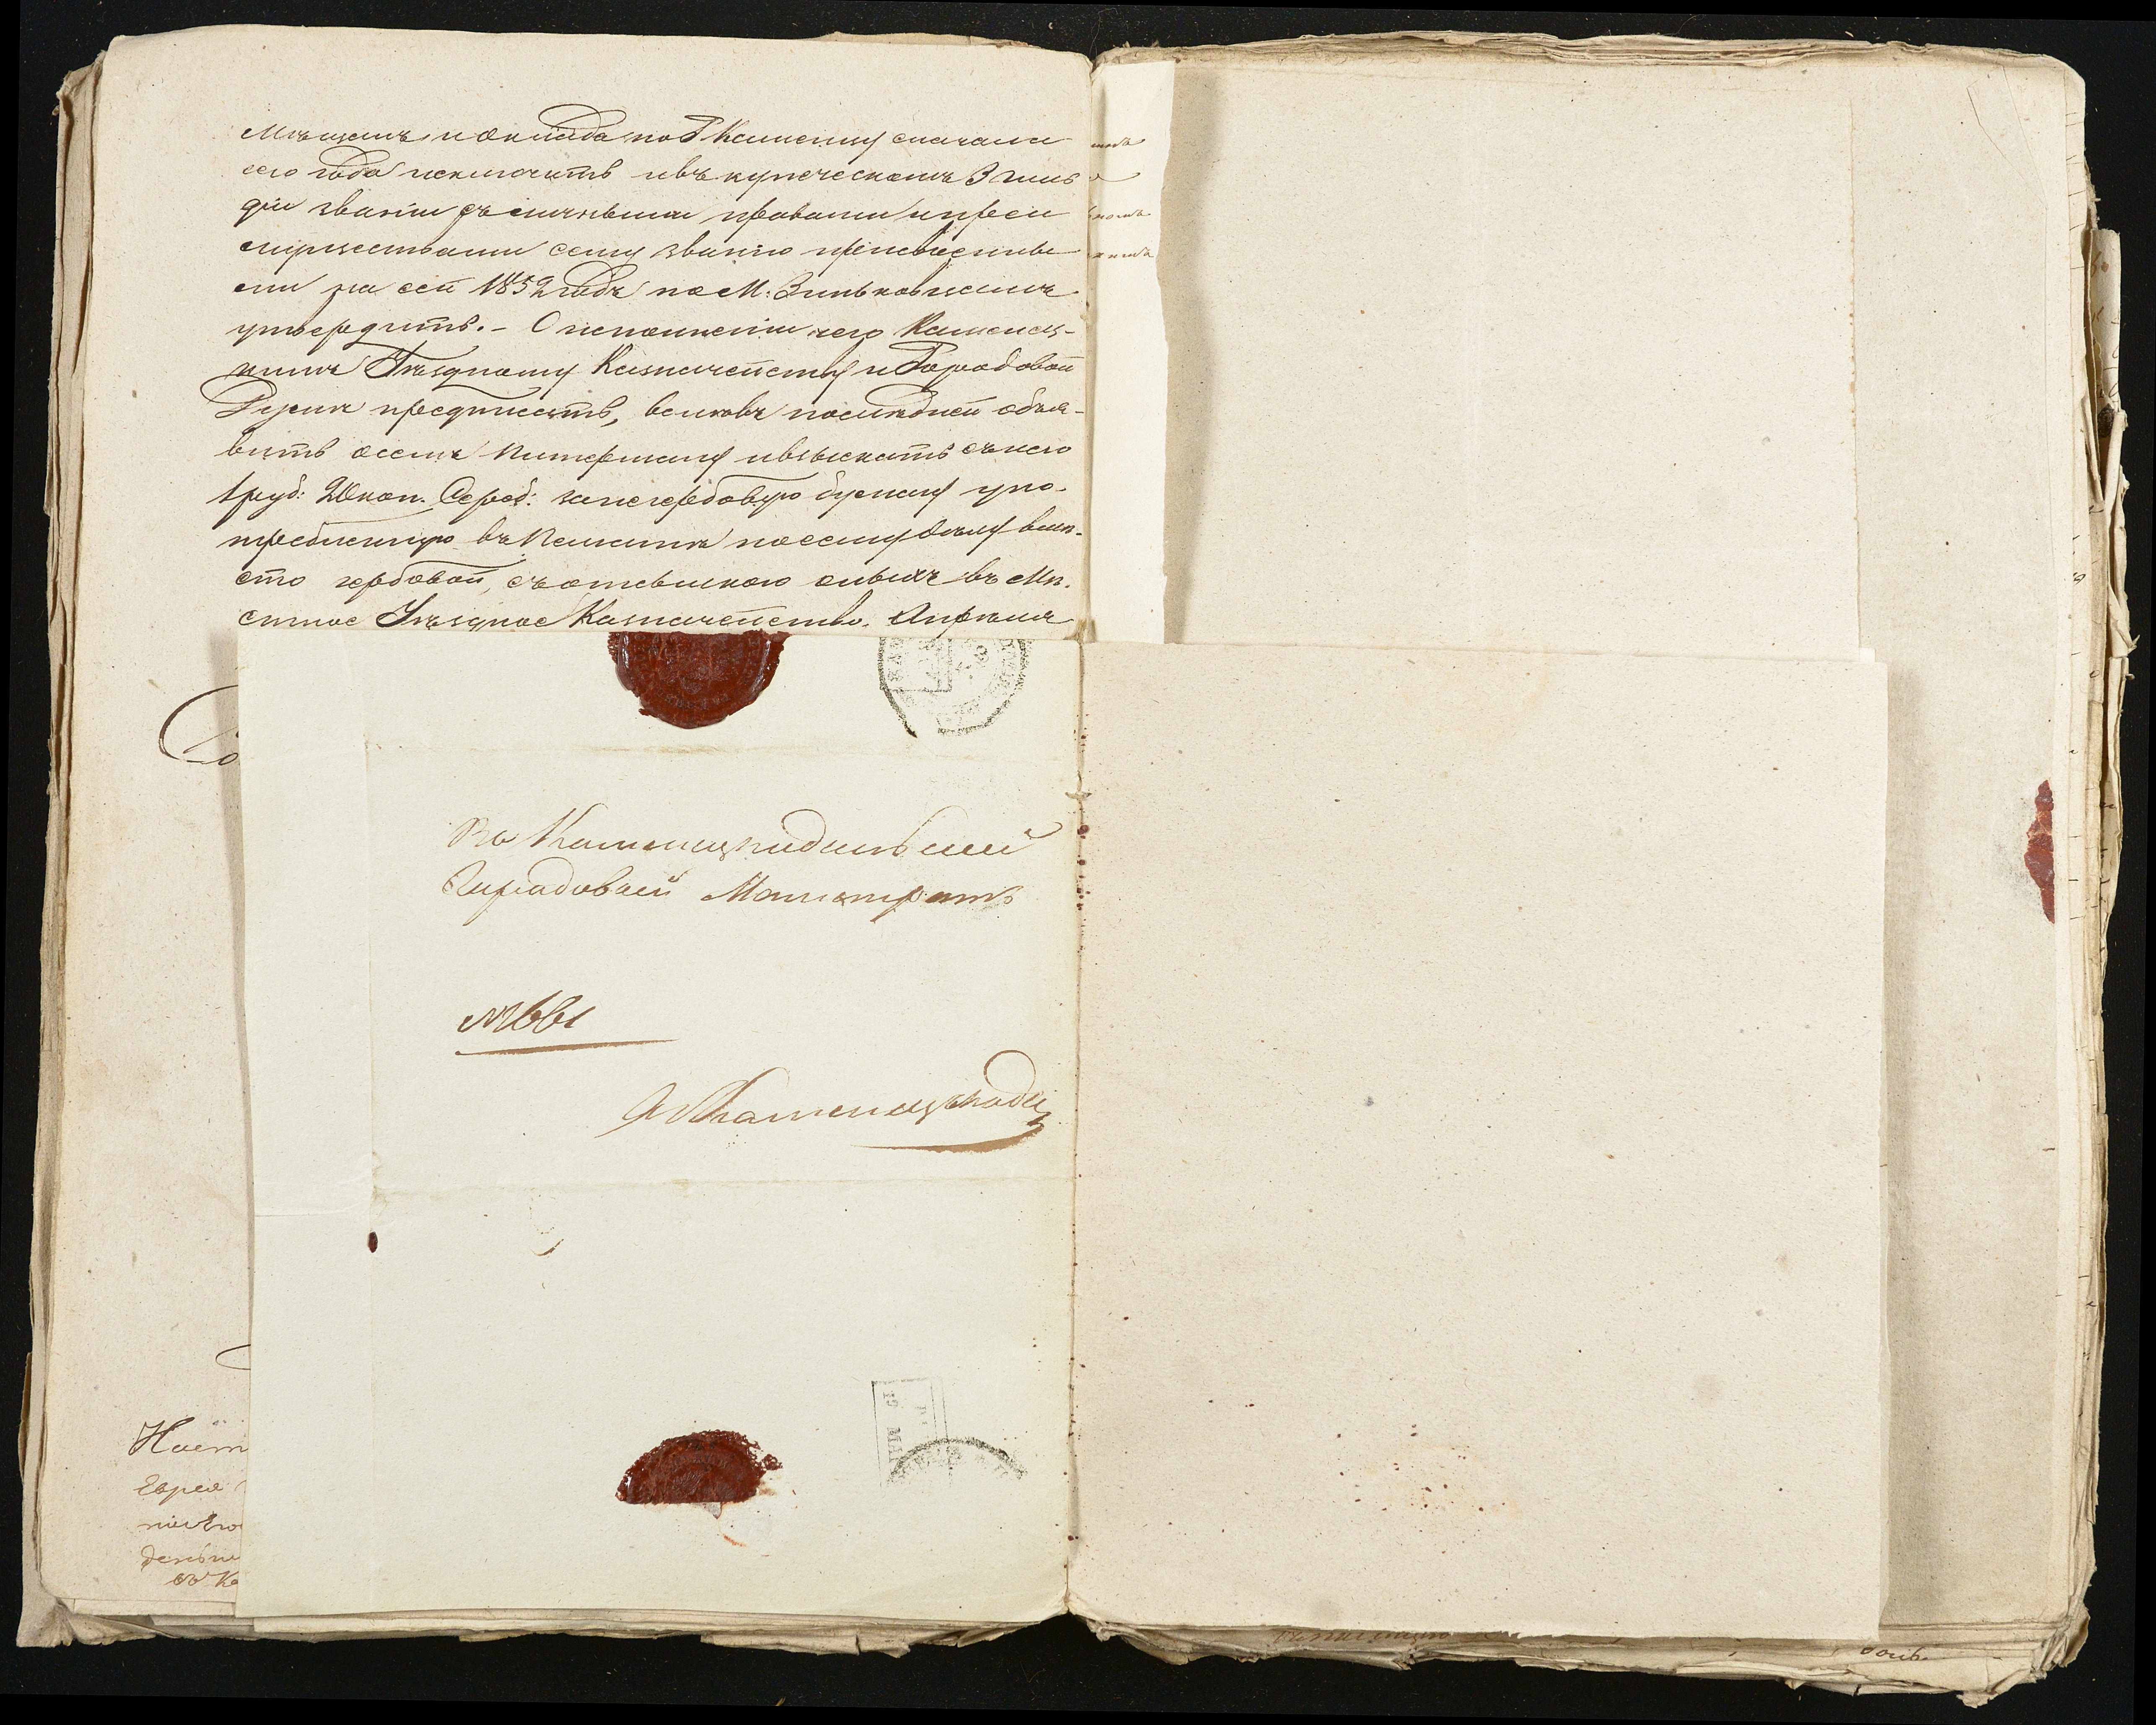 мѣщанъ и оклада по Г. Каменцу сначала
сего года исключить и въ купеческомъ 3 гиль
діи званіи съ личными правами и преи
муществами сему званію присвоенны
ми на сей 1852 годъ по М. Зиньковцамъ
утвердить. – О исполненіи чего Каменец-
кимъ Уѣздному Казначейству и Городовой
Думѣ предписать, велѣвъ послѣдней объя-
вить о семъ Питерману и взыскать съ него
1 руб: 20 коп. Сереб: за негербовую бумагу упо-
требленную въ Палатѣ по сему дѣлу вмѣ-
сто гербовой, съ отсылкою оныхъ въ мѣ-
стное Уѣздное Казначейство. Апрѣля
Въ Каменецподольскій
Городовый Магистратъ
№ 661
въ Каменецъ подол
Наст
Еврея
деньги
въ Ка